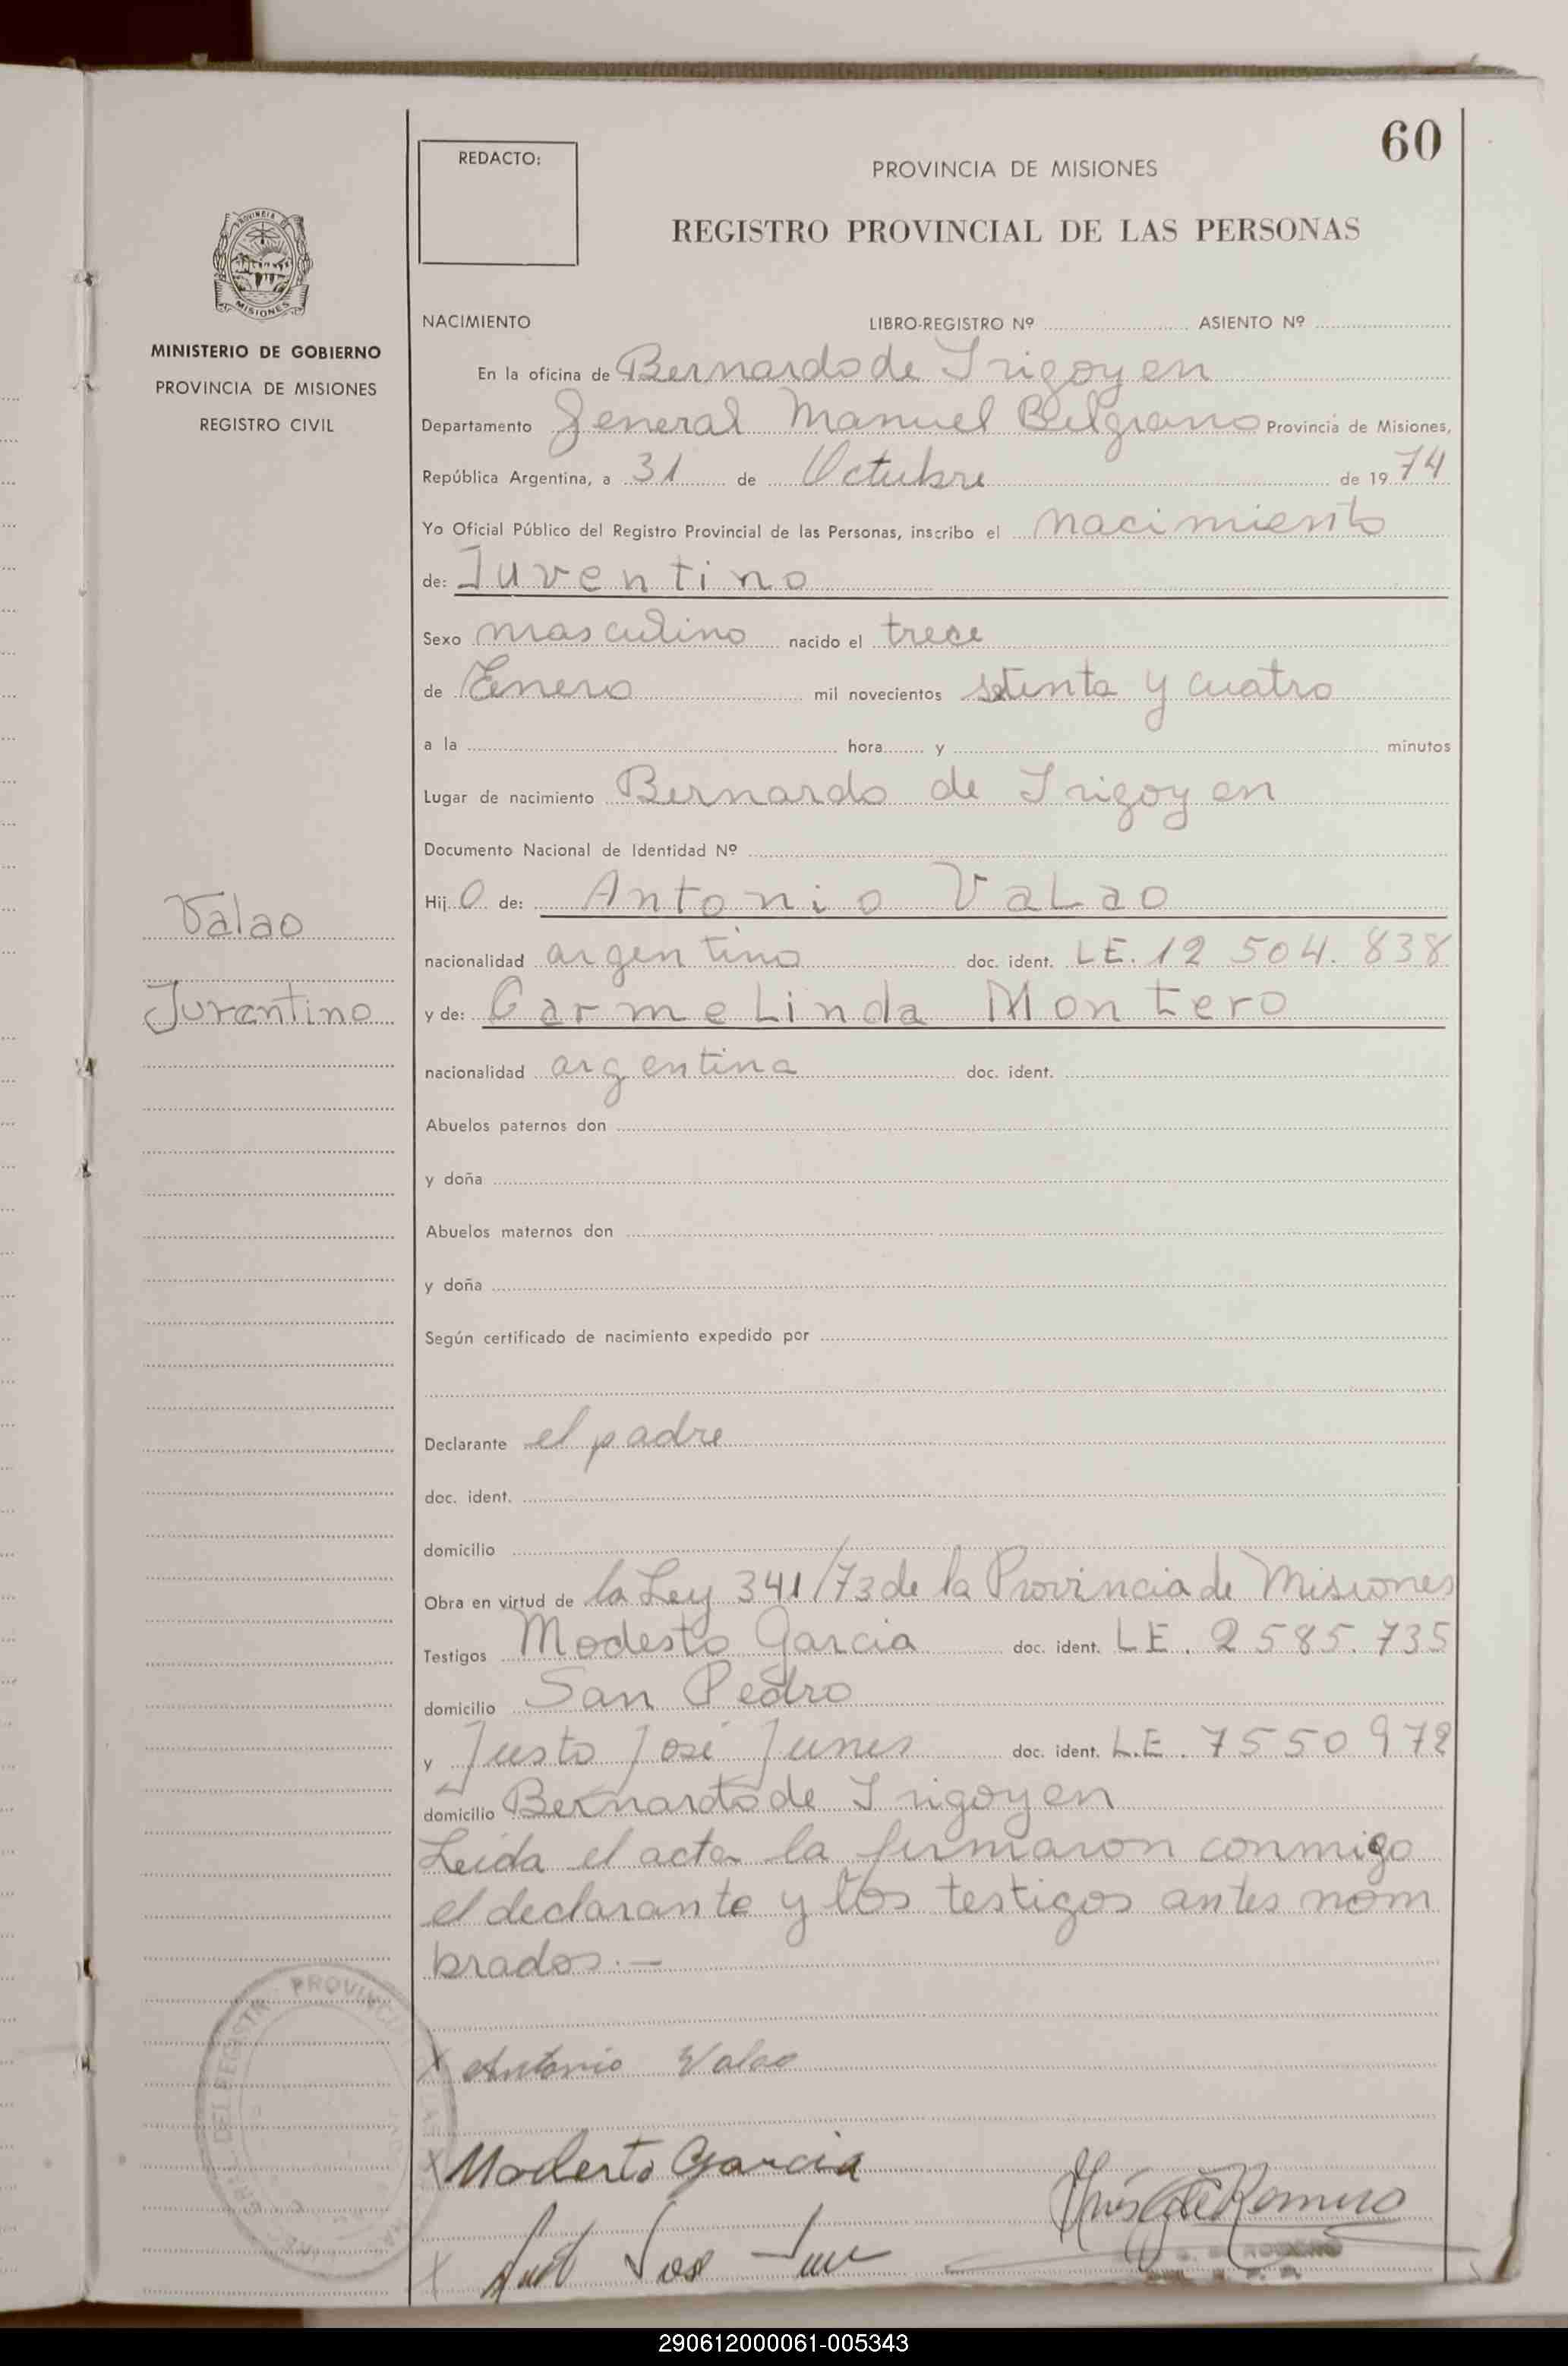 60
REDACTO:
PROVINCIA DE MISIONES
REGISTRO PROVINCIAL DE LAS PERSONAS
PROVINCIA
MISIONES
MINISTERIO DE GOBIERNO
PROVINCIA DE MISIONES
REGISTRO CIVIL
NACIMIENTO LIBRO-REGISTRO Nº ASIENTO Nº
En la oficina de Bernardo de Irigoyen
Departamento General Manuel Belgrano Provincia de Misiones,
República Argentina, a 31 de Octubre de 1974
Yo Oficial Público del Registro Provincial de las Personas, inscribo el nacimiento
de: Juventino
Sexo masculino nacido el trece
de Enero mil novecientos setenta y cuatro
a la hora y minutos
Lugar de nacimiento Bernardo de Irigoyen
Documento Nacional de Identidad Nº
Valao
Juventino
Hijo de: Antonio Valao
nacionalidad argentino doc. ident. LE. 12 504. 838
y de: Carmelinda Montero
nacionalidad argentina doc. ident.
Abuelos paternos don
y doña
Abuelos maternos don
y doña
Según certificado de nacimiento expedido por
Declarante el padre
doc. ident.
domicilio
Obra en virtud de la Ley 341/73 de la Provincia de Misiones
Testigos Modesto Garcia doc. ident. LE. 2585.735
domicilio San Pedro
y Justo José Junes doc. ident. L.E. 7550972
domicilio Bernardo de Irigoyen
Leida el acta la firmaron conmigo
el declarante y los testigos antes nom
brados.—
X Antonio Valao
X Modesto Garcia
X
290612000061-005343